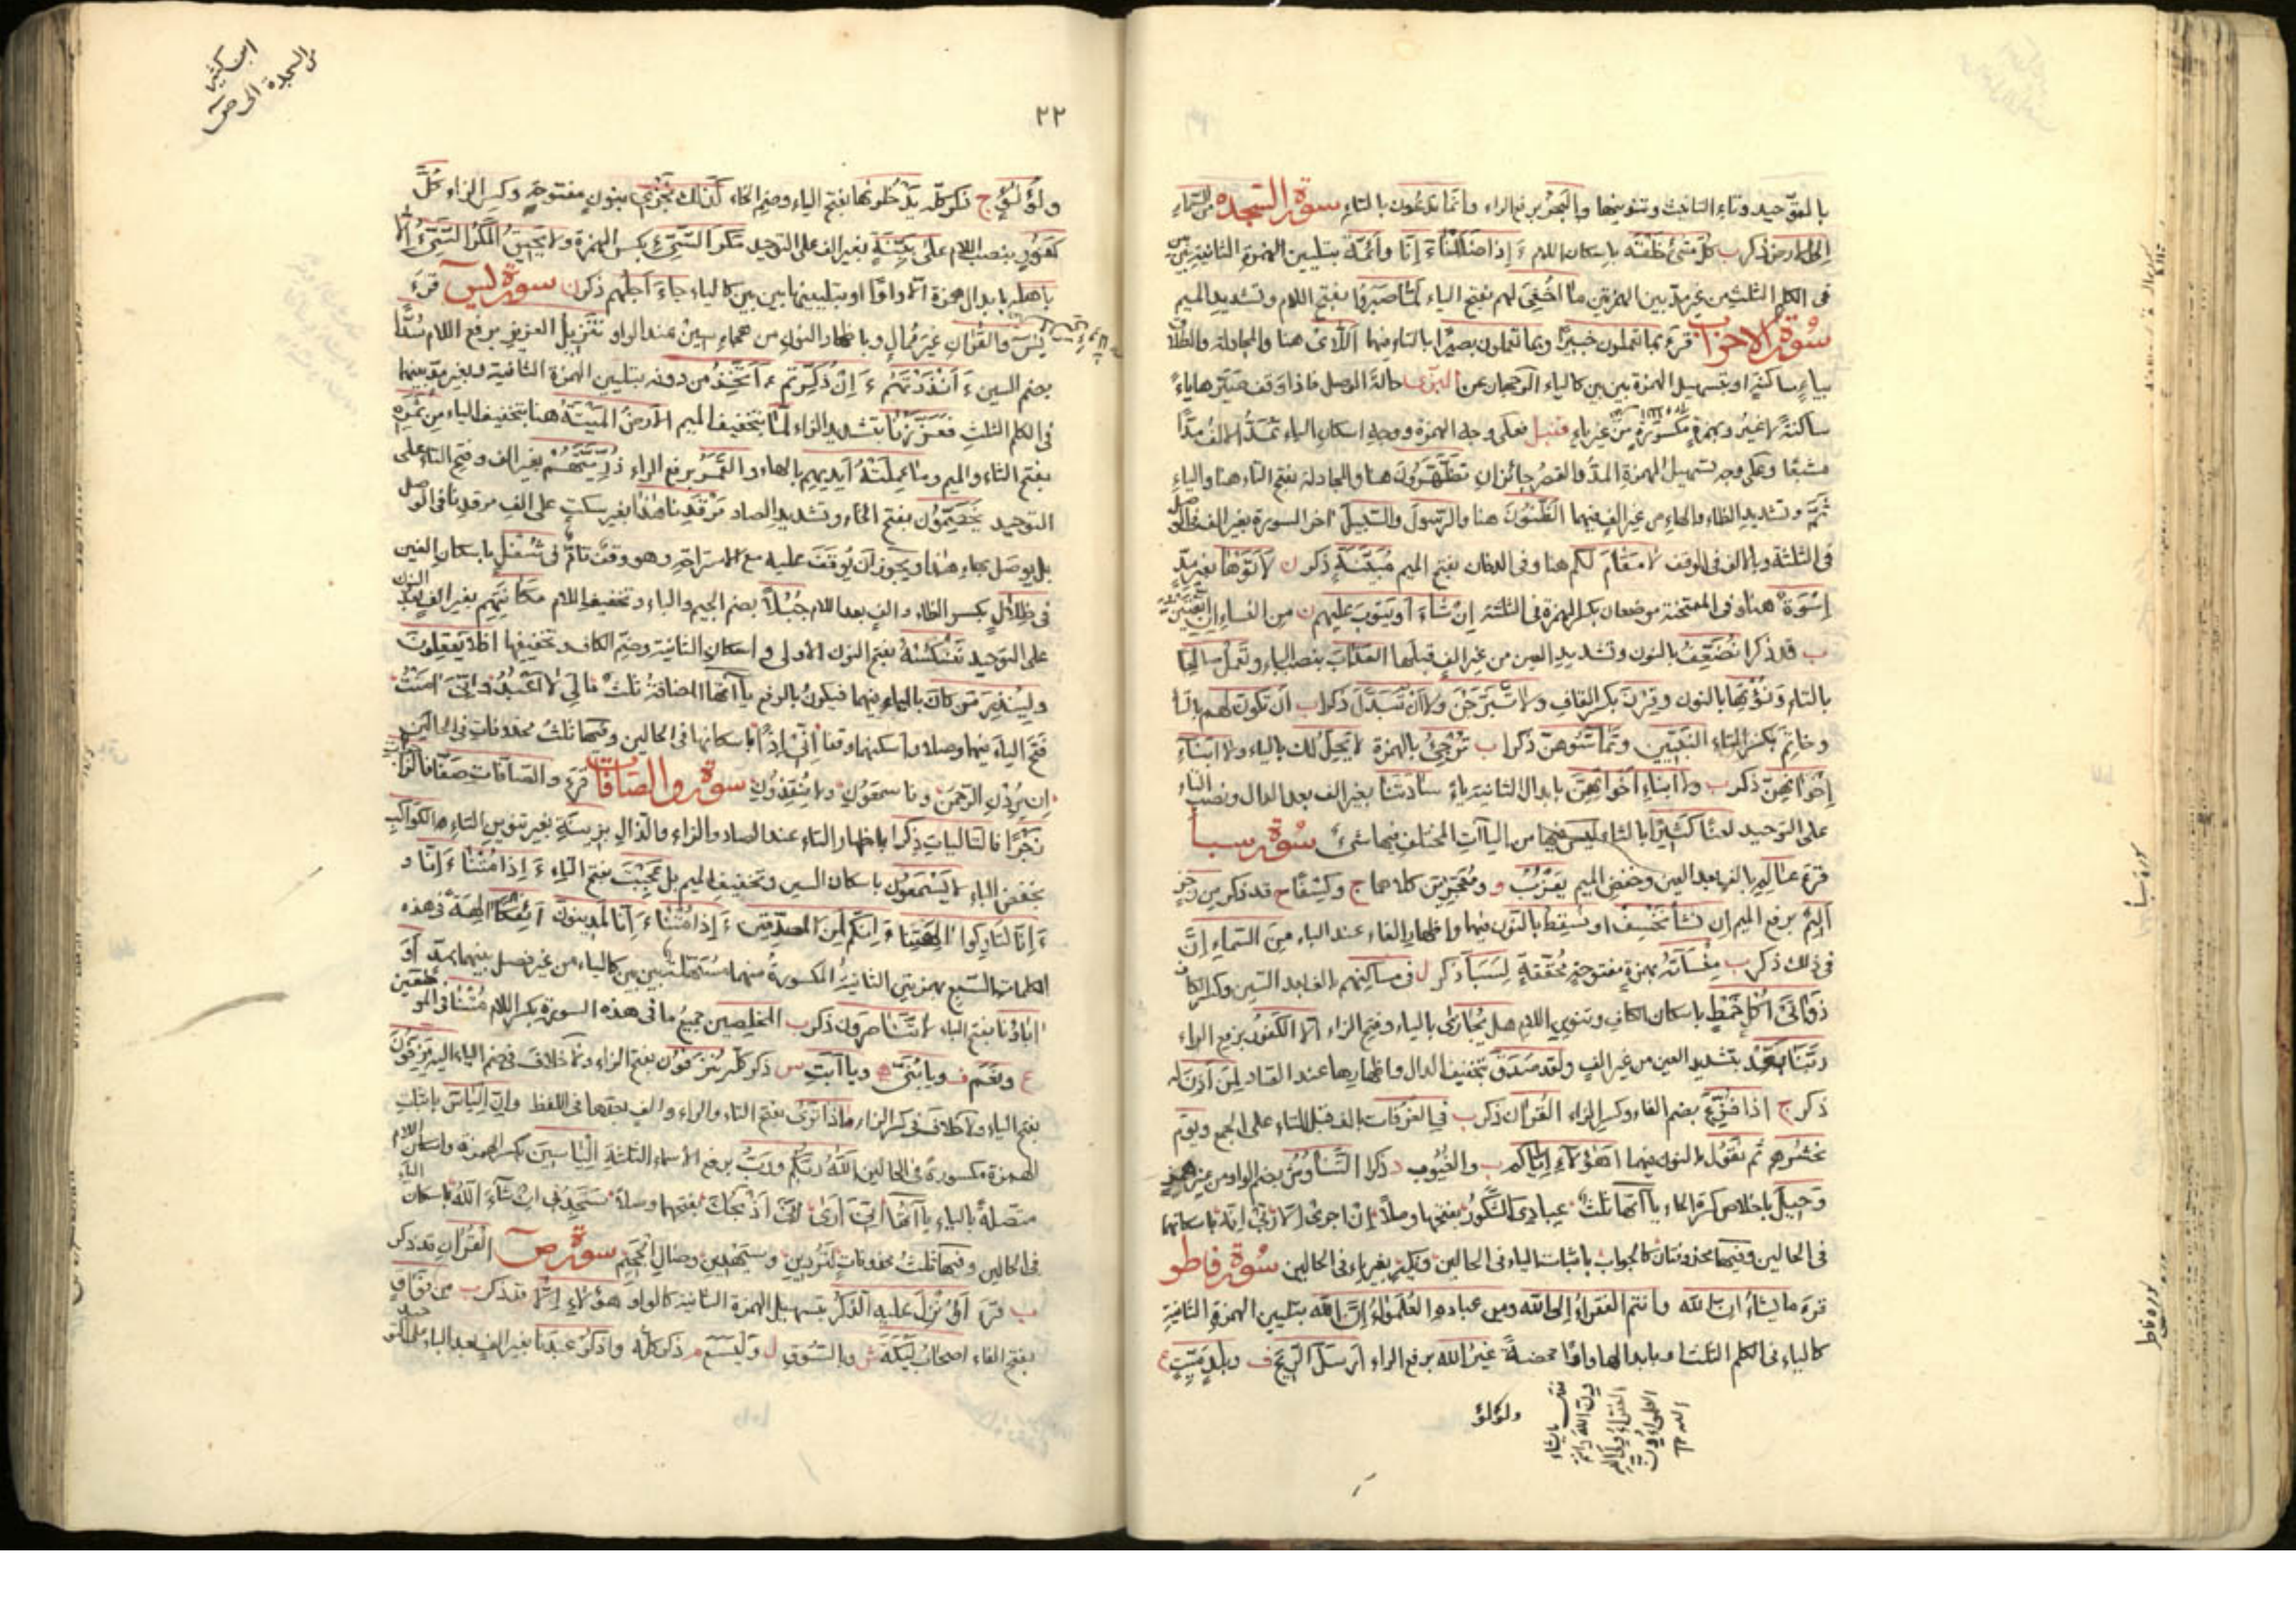 بالتوحيد وتاء التانيث وتنوينها والبحر برفع الراء وانما تدعون بالتاء سورة السجدة من السماء
الى الارض ذكر ب كل شئ خلقه باسكان اللام ءَ اذا ضللنا ءَ انا وائمة بتليين الهمزة الثانية بين بين
فى الكلم الثلث من غير مد بين الهمزتين ما اخفى لهم بفتح الياء لما صبروا بفتح اللام وتشديد الميم
سورة الاحزاب قرء بما تعملون خبيرا وبما تعملون بصيرا بالتاء فيهما اللائ هنا والمجادلة والطلاق
بياء ساكنة او بتسهيل الهمزة بين بين كالياء الوجهان عن البزى حالة الوصل فاذا وقف صيرها ياء
ساكنة لا غير وبهمزة مكسورة من غير ياء قنبل فعلى وجه الهمزة ووجه اسكان الياء تمد الالف مدا
مشبعا وعلى وجه تسهيل الهمزة المد والقصر جائزان تظهرون هنا والمجادلة بفتح التاء هنا والياء
ثم وتشديد الظاء والهاء من غير الف فيهما الظنون هنا والرسول والسبيل اخر السورة بغير الف فى الوصل
فى الثلثة وبالالف فى الوقف لا مقام لكم هنا وفى الدخان بفتح الميم مبينة ذكر ن لاتوها بغير مد
اسوة هنا وفى الممتحنة موضعان بكسر الهمزة فى الثلثة ان شاء او يتوب عليهم ن من النساء ان اتقيتن
ب قد ذكرا نضعف بالنون وتشديد العين من غير الف قبلها العذاب بنصب الباء وتعمل صالحا
بالتاء ونؤتها بالنون وقرن بكسر القاف ولا تبرجن ولا ان تبدل ذكرا ب ان تكون لهم بالتاء
وخاتم بكسر التاء النبيين وتماسوهن ذكرا ب ترجئ بالهمزة لا يحل لك بالياء ولا ابناء
اخوانهن ذكر ب ولا ابناء اخواتهن بابدال الثانية ياء سادتنا بغير الف بعد الدال ونصب التاء
على التوحيد لعنا كثيرا بالثاء ليس فيها من الياآت المختلف فيها شئ سورة سبأ
قرء عالم بالف بعد العين وخفض الميم يعزب و ومعجزين كلاهما ج وكسفا ح قد ذكر من رجز
اليم برفع الميم ان نشأ نخسف او نسقط بالنون فيها واظهار الفاء عند الباء من السماء ان
فى ذلك ذكر ب منسأته بهمزة مفتوحة محققة لسبأ ذكر ل فى مساكنهم بالف بعد السين وكسر الكاف
ذواتى اكل خمط باسكان الكاف وتنوين اللام هل يجازى بالياء وفتح الزاء الا الكفور برفع الراء
ربنا بعد بتشديد العين من غير الف ولقد صدق بتخفيف الدال واظهارها عند الصاد لمن اذن له
ذكر ج اذا فزع بضم الفاء وكسر الزاء القران ذكر ب فى الغرفات بالف قبل التاء على الجمع ويوم
نحشرهم ثم نقول بالنون فيهما اهؤلاء اياكم ب والغيوب د ذكرا التناوش بضم الواو من غير همز
وحيل باخلاص كسرة الحاء ياآتها ثلث عبادى الشكور بفتحها وصلا ان اجرى الا ربى انه باسكانها
فى الحالين وفيها محذوفتان كالجواب باثبات الياء فى الحالين ونكير بغير ياء فى الحالين سورة فاطر
قرء ما يشاء ان الله وانتم الفقراء الى الله ومن عباده العلماء ان الله بتليين الهمزة الثانية
كالياء فى الكلم الثلث او بابدالها واوا محضة غير الله برفع الراء ارسل الريح ف وبلد ميت ع
ولؤلؤ
سورة سبأ
سورة فاطر
ابن كثير
من السجدة الى ص
٢٢
ولؤلؤ ج ذكر كله يدخلونها بفتح الياء وضم الخاء كذلك نجزى بنون مفتوحة وكسر الزاء كل
كفور بنصب اللام على بينة بغير الف على التوحيد ومكر السيئ بكسر الهمزة ولا يحيق المكر السيئ الا
باهله بابدال همزة الا واوا او بتليينها بين بين كالياء جاء اجلهم ذكر ن سورة يس قرء
يس والقران غير ممال وباظهار النون من هجاء سين عند الواو تنزيل العزيز برفع اللام سدا
بضم السين ءَ انذرتهم ءَ ان ذكرتم ءَ اتخذ من دونه بتليين الهمزة الثانية وبغير مد بينهما
فى الكلم الثلث فعززنا بتشديد الزاء لما بتخفيف الميم الارض الميتة هنا بتخفيف الياء من ثمره
بفتح الثاء والميم وما عملته ايديهم بالهاء والقمر برفع الراء ذريتهم بغير الف وفتح التاء على
التوحيد يخصمون بفتح الخاء وتشديد الصاد مرقدنا هذا بغير سكت على الف مرقدنا فى الوصل
بل يوصل بهاء هذا ويجوز ان يوقف عليه مع الاستراحة وهو وقف تام فى شغل باسكان الغين
فى ظلال بكسر الظاء والف بعد اللام جبلا بضم الجيم والباء وتخفيف اللام مكانتهم بغير الف بعد النون
على التوحيد ننكسه بفتح النون الاولى واسكان الثانية وضم الكاف وتخفيفها افلا يعقلون
ولينذر من كان بالياء فيهما فيكون بالرفع ياآتها المضافة ثلث مالى لا اعبد وانى امنت
فتح الياء فيهما وصلا واسكنهما وقفا انى اذا باسكانها فى الحالين وفيها ثلث محذوفات فى الحالين
ان يردن الرحمن وفاسمعون ولا ينقذون سورة والصافات قرء والصافات صفا فالزاجرات
زجرا فالتاليات ذكرا باظهار التاء عند الصاد والزاء والذال بزينة بغير تنوين التاء الكواكب
بخفض الباء لا يسمعون باسكان السين وتخفيف الميم بل عجبت بفتح التاء ءَ اذا متنا ءَ انا و
ءَ انا لتاركوا الهتنا ءَ انك لمن المصدقين ءَ اذا متنا ءَ انا لمدينون ائفكا الهة فى هذه
الكلمات السبع بهمزتين الثانية المكسورة منهما مسهلة بين بين كالياء من غير فصل بينهما بمد او
اباؤنا بفتح الباء لا تناصرون ذكر ب المخلصين جميع ما فى هذه السورة بكسر اللام متنا فى الموضعين
ع ونعم ف ويابنى ه وياابت س ذكر كله ينزفون بفتح الزاء ولا خلاف فى ضم الياء اليه يزفون
بفتح الياء ولا خلاف فى كسر الزاء ماذا ترى بفتح التاء والراء والف بعدها فى اللفظ وان الياس باثبات
الهمزة مكسورة فى الحالين الله ربكم ورب برفع الاسماء الثلثة الياسين بكسر الهمزة واسكان اللام
متصلة بالياء ياآتها انى ارى انى اذبحك بفتحهما وصلا ستجدنى ان شاء الله باسكان الياء
فى الحالين وفيها ثلث محذوفات لتردين وسيهدين وصال الجحيم سورة ص القران قد ذكر
ب قرء اؤنزل عليه الذكر بتسهيل الهمزة الثانية كالواو هؤلاء الا قد ذكر ب من فواق
بفتح الفاء اصحاب ليكة ش وبالسوق ل واليسع م ذكر كله واذكر عبدنا بغير الف بعد الباء على التوحيد